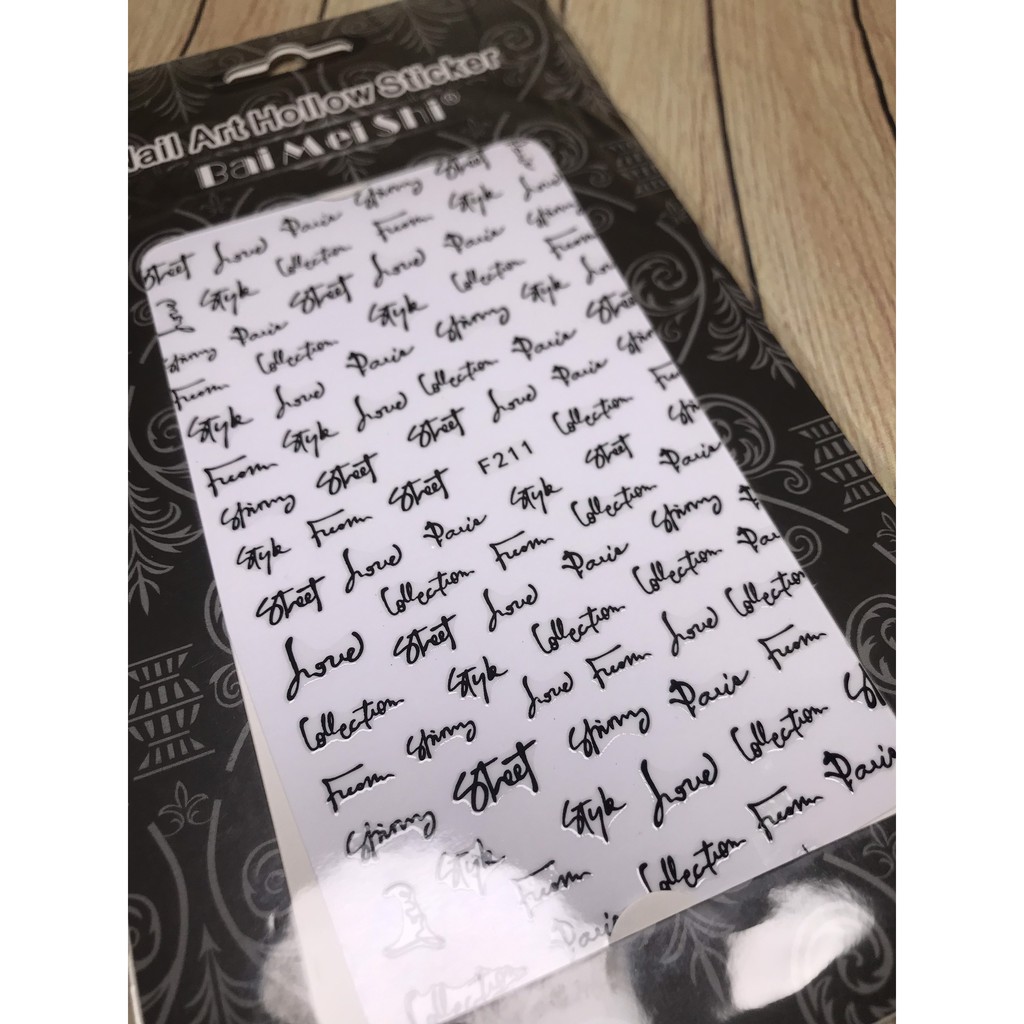 Nail Art Hollow Sticker
BaiMeiShi®
Street Love Paris Spring Street
Style Collection From Style Love
Street Love Paris Spring
Spring Paris Style Collection From
From Collection Spring Style
Style Love Paris Paris Street
Style Love Collection Spring
From Street Love Paris
Spring Street F211 Collection
Style From Street Street
Street Love Paris Style Paris
Collection From Collection
Love Street Love Paris Spring
Collection Style Collection Collection
From Spring Love From Love Collection
Spring Street Spring Paris From
Style Style Love Collection
From Collection From Paris
Collection Paris